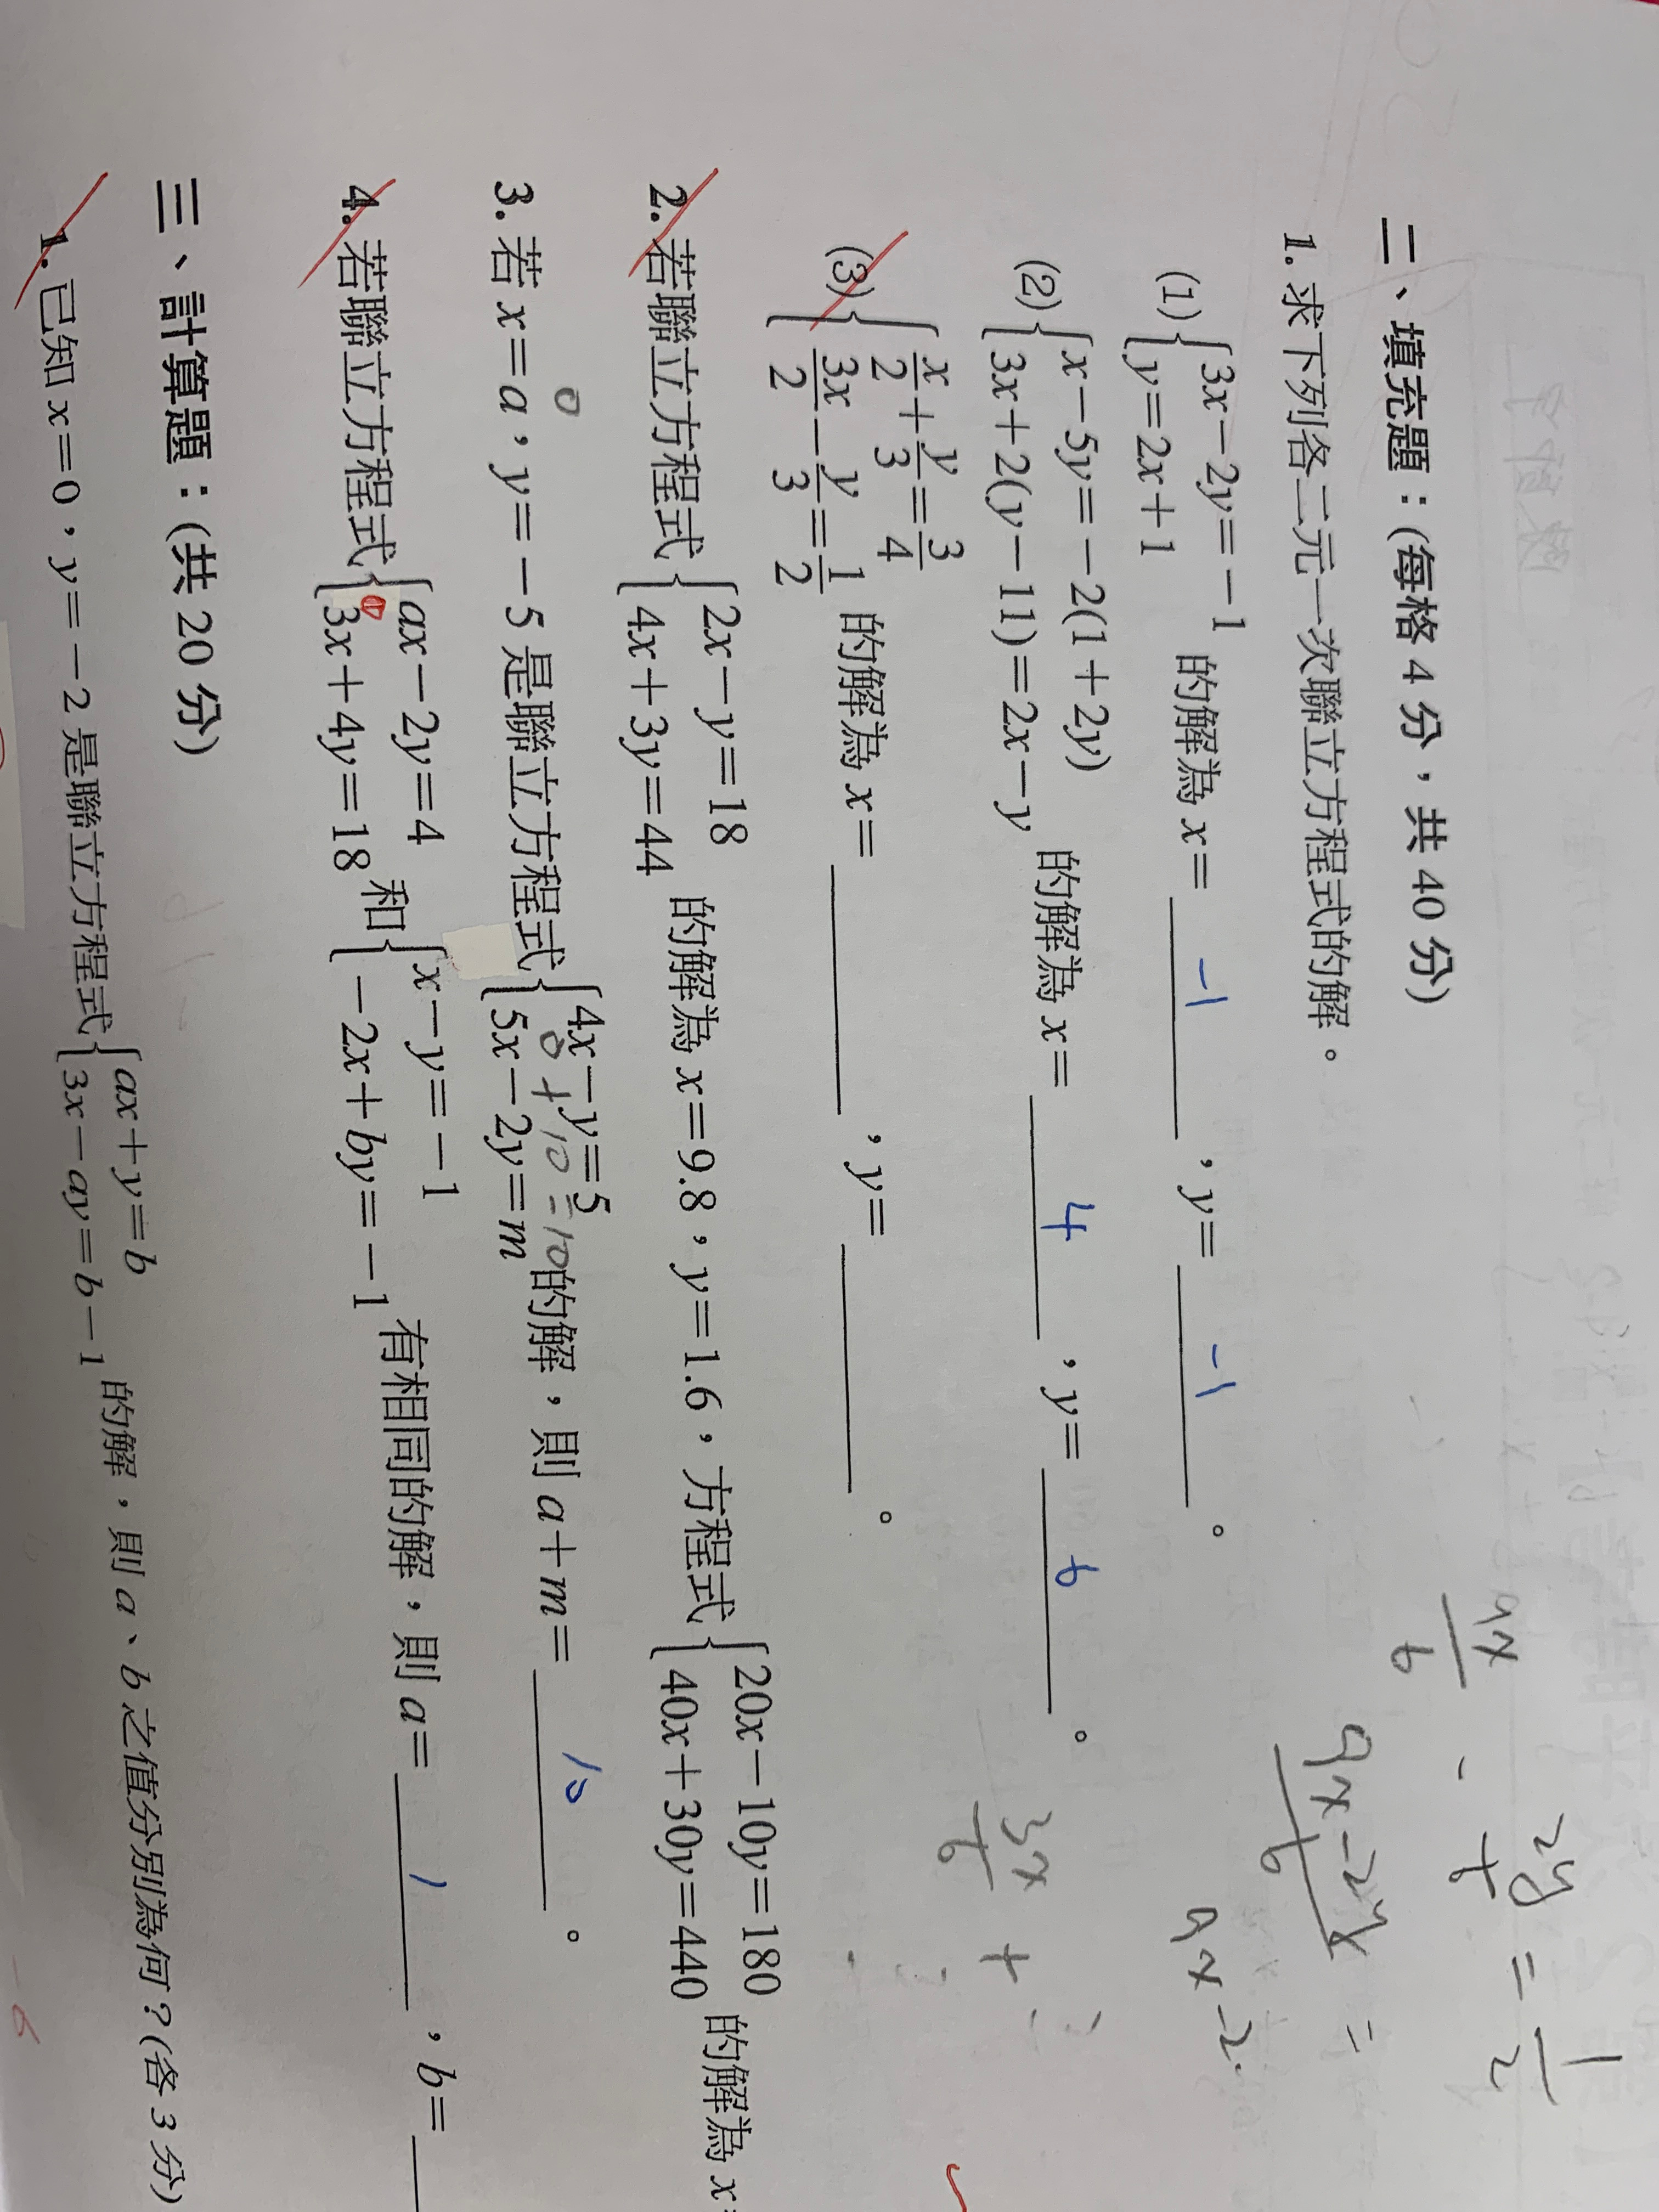 二、填充題：(每格 4 分，共 40 分)
1. 求下列各二元一次聯立方程式的解。
(1) { 3x－2y＝－1
y＝2x＋1 的解為 x＝ -1 ，y＝ -1 。
(2) { x－5y＝－2(1＋2y)
3x＋2(y－11)＝2x－y 的解為 x＝ 4 ，y＝ 6 。
(3) { x/2＋y/3＝3/4
3x/2－y/3＝1/2 的解為 x＝ ，y＝ 。
2. 若聯立方程式 { 2x－y＝18
4x＋3y＝44 的解為 x＝9.8，y＝1.6，方程式 { 20x－10y＝180
40x＋30y＝440 的解為 x＝
0
3. 若 x＝a，y＝－5 是聯立方程式 { 4x－y＝5
5x－2y＝m 的解，則 a＋m＝ 10 。
0 + 10 = 10
4. 若聯立方程式 { ax－2y＝4
3x＋4y＝18 和 { x－y＝－1
－2x＋by＝－1 有相同的解，則 a＝ 1 ，b＝
三、計算題：(共 20 分)
1. 已知 x＝0，y＝－2 是聯立方程式 { ax＋y＝b
3x－ay＝b－1 的解，則 a、b 之值分別為何？(各 3 分)
9x/6 - 2y/6 = 1/2
9x-2y/6 =
9x-2
3x/6 +